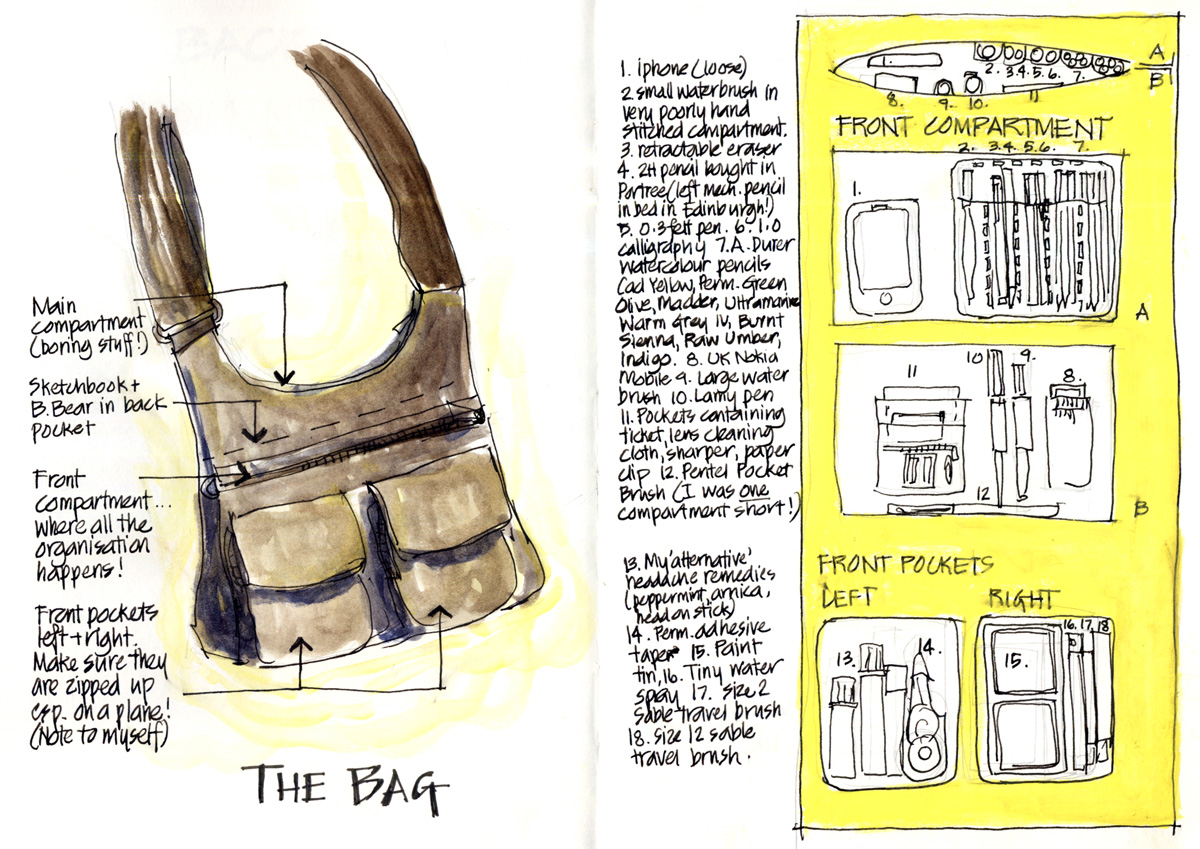 Main
compartment
(boring stuff!)
Sketchbook +
B.Bear in back
pocket
Front
compartment...
where all the
organisation
happens!
Front pockets
left + right.
Make sure they
are zipped up
esp. on a plane!
(Note to myself)
THE BAG
1. iphone (loose)
2. small waterbrush in
very poorly hand
stitched compartment.
3. retractable eraser
4. 2H pencil bought in
Portree (left mech. pencil
in bed in Edinburgh!)
5. 0.3 felt pen. 6. 1.0
calligraphy 7. A. Durer
watercolour pencils
Cad Yellow, Perm. Green
Olive, Madder, Ultramarine
Warm Grey IV, Burnt
Sienna, Raw Umber,
Indigo. 8. UK Nokia
Mobile 9. Large water
brush 10. Lamy pen
11. Pockets containing
ticket, lens cleaning
cloth, sharper, paper
clip 12. Pentel Pocket
Brush (I was one
compartment short!)
13. My 'alternative'
headache remedies
(peppermint, arnica,
head on stick)
14. Perm. adhesive
tape 15. Paint
tin, 16. Tiny water
spray 17. size 2
sable travel brush
18. size 12 sable
travel brush.
A
B
2. 3. 4. 5. 6. 7.
8. 9. 10. 11
FRONT COMPARTMENT
2. 3. 4. 5. 6. 7.
1.
A
10 9.
11 8.
12
B
FRONT POCKETS
LEFT RIGHT
13. 14.
15. 16. 17. 18